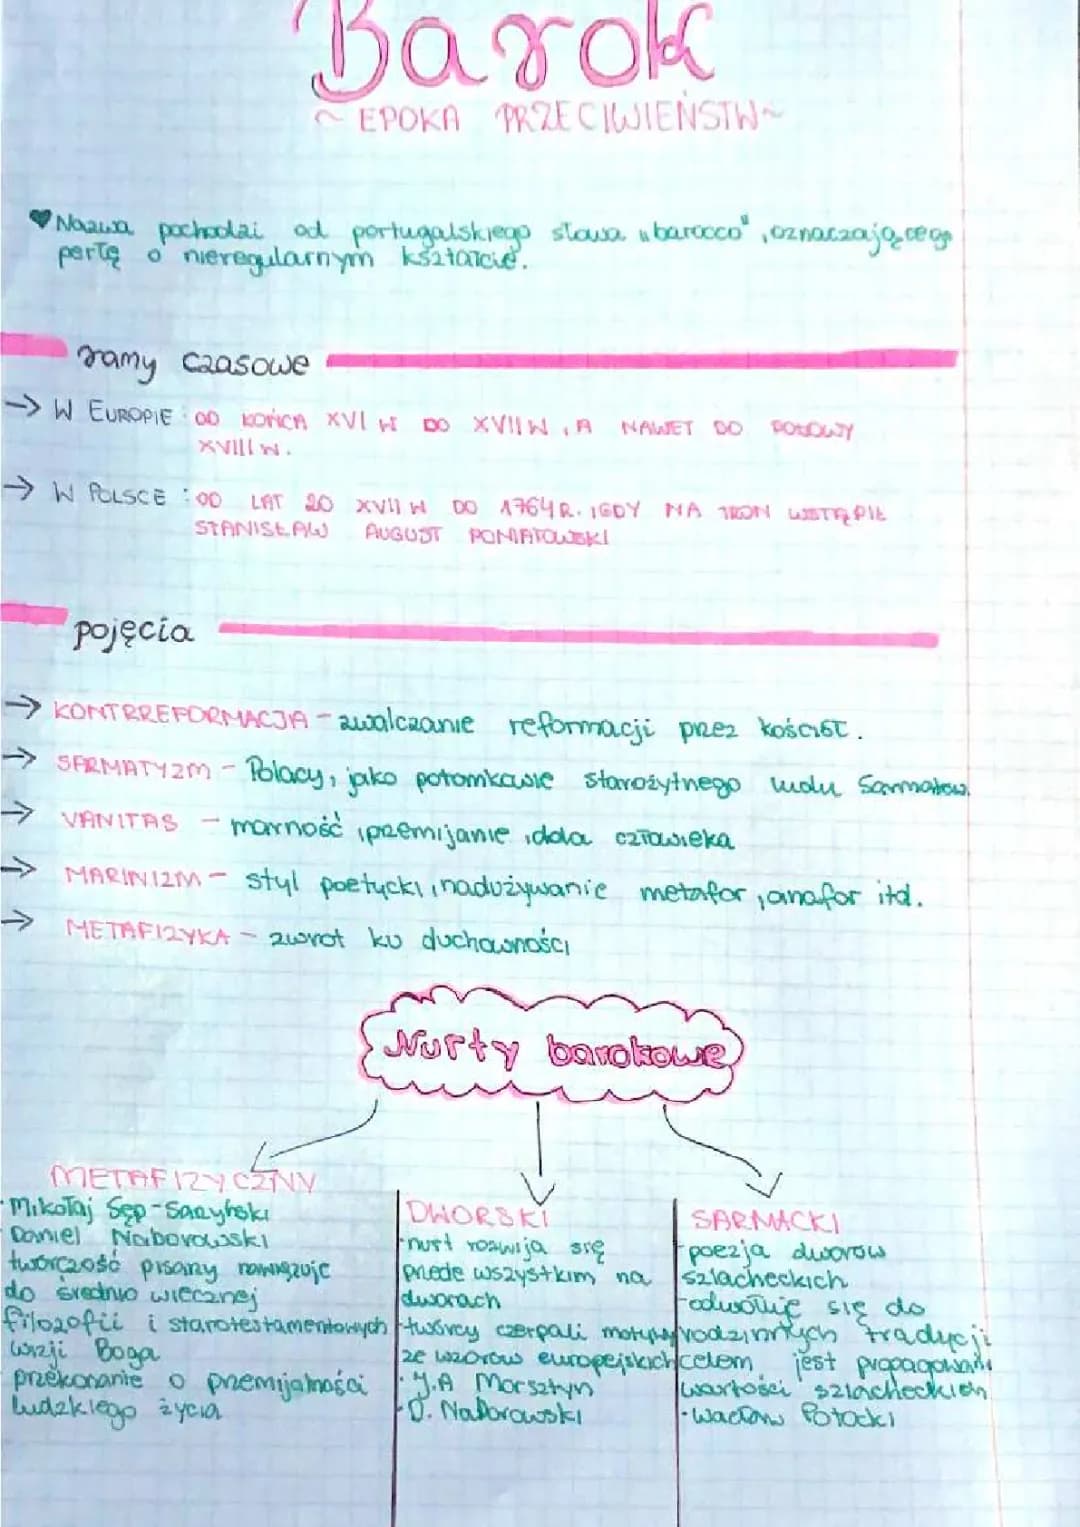 Barok
~ EPOKA PRZECIWIEŃSTW ~
Nazwa pochodzi od portugalskiego słowa „barocco", oznaczającego
perłę o nieregularnym kształcie.
ramy czasowe
→ W EUROPIE : OD KOŃCA XVI W DO XVII W, A NAWET DO POŁOWY
XVIII W.
→ W POLSCE : OD LAT 20 XVII W DO 1764 R. , GDY NA TRON WSTĄPIŁ
STANISŁAW AUGUST PONIATOWSKI
pojęcia
→ KONTRREFORMACJA - zwalczanie reformacji przez kościół.
→ SARMATYZM - Polacy, jako potomkowie starożytnego ludu Sarmatow.
→ VANITAS - marność , przemijanie , dola człowieka
→ MARINIZM - styl poetycki , nadużywanie metafor , anafor itd.
→ METAFIZYKA - zwrot ku duchowności
Nurty barokowe
METAFIZYCZNY
· Mikołaj Sęp-Sarzyński
Daniel Naborowski
twórczość pisany nawiązuje
do średnio wiecznej
filozofii i starotestamentowych
wizji Boga
przekonanie o przemijalności
ludzkiego życia
DWORSKI
· nurt rozwija się
przede wszystkim na
dworach
- twórcy czerpali motywy
ze wzorów europejskich
· J.A Morsztyn
- D. Naborowski
SARMACKI
- poezja dworów
szlacheckich
- odwołuje się do
rodzinnych tradycji
celem jest propagowanie
wartości szlacheckich
· Wacław Potocki